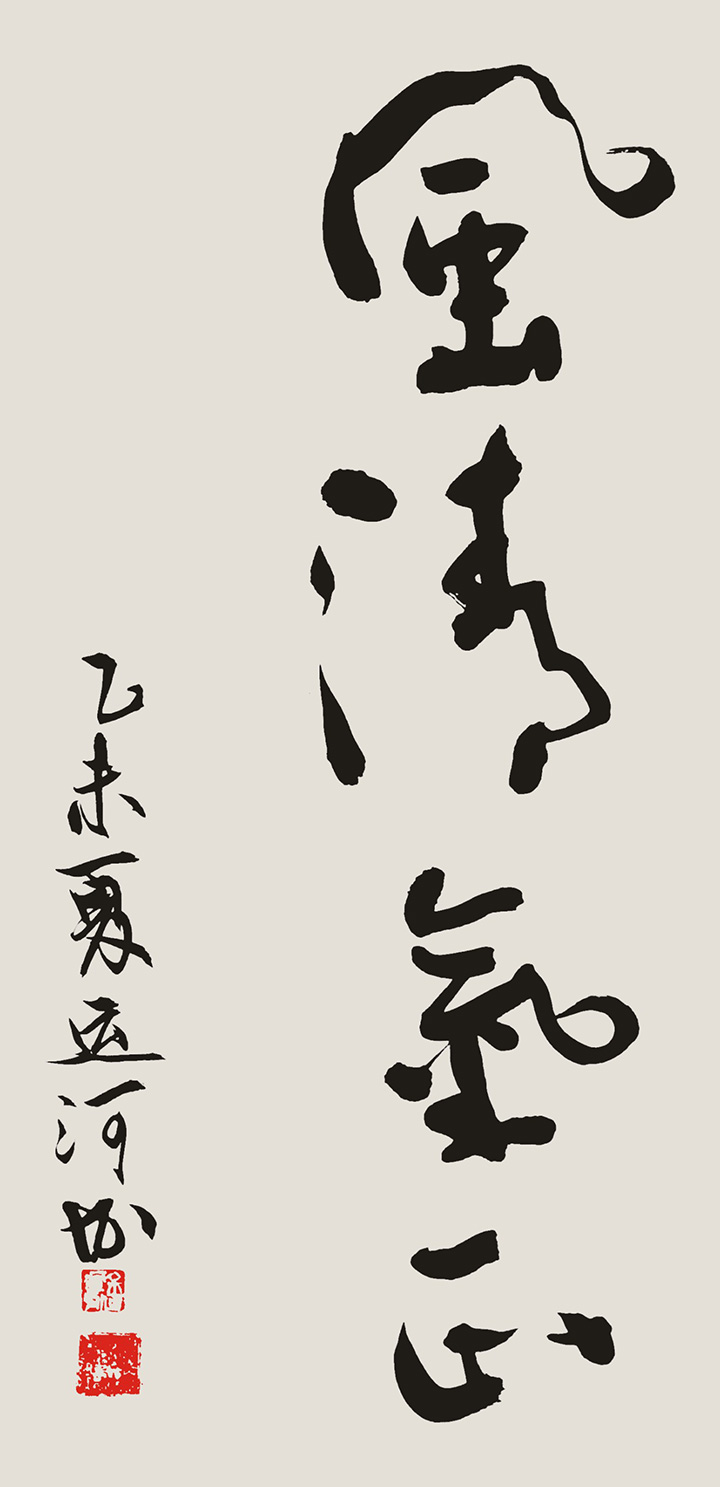 風清氣正
乙未夏运河书